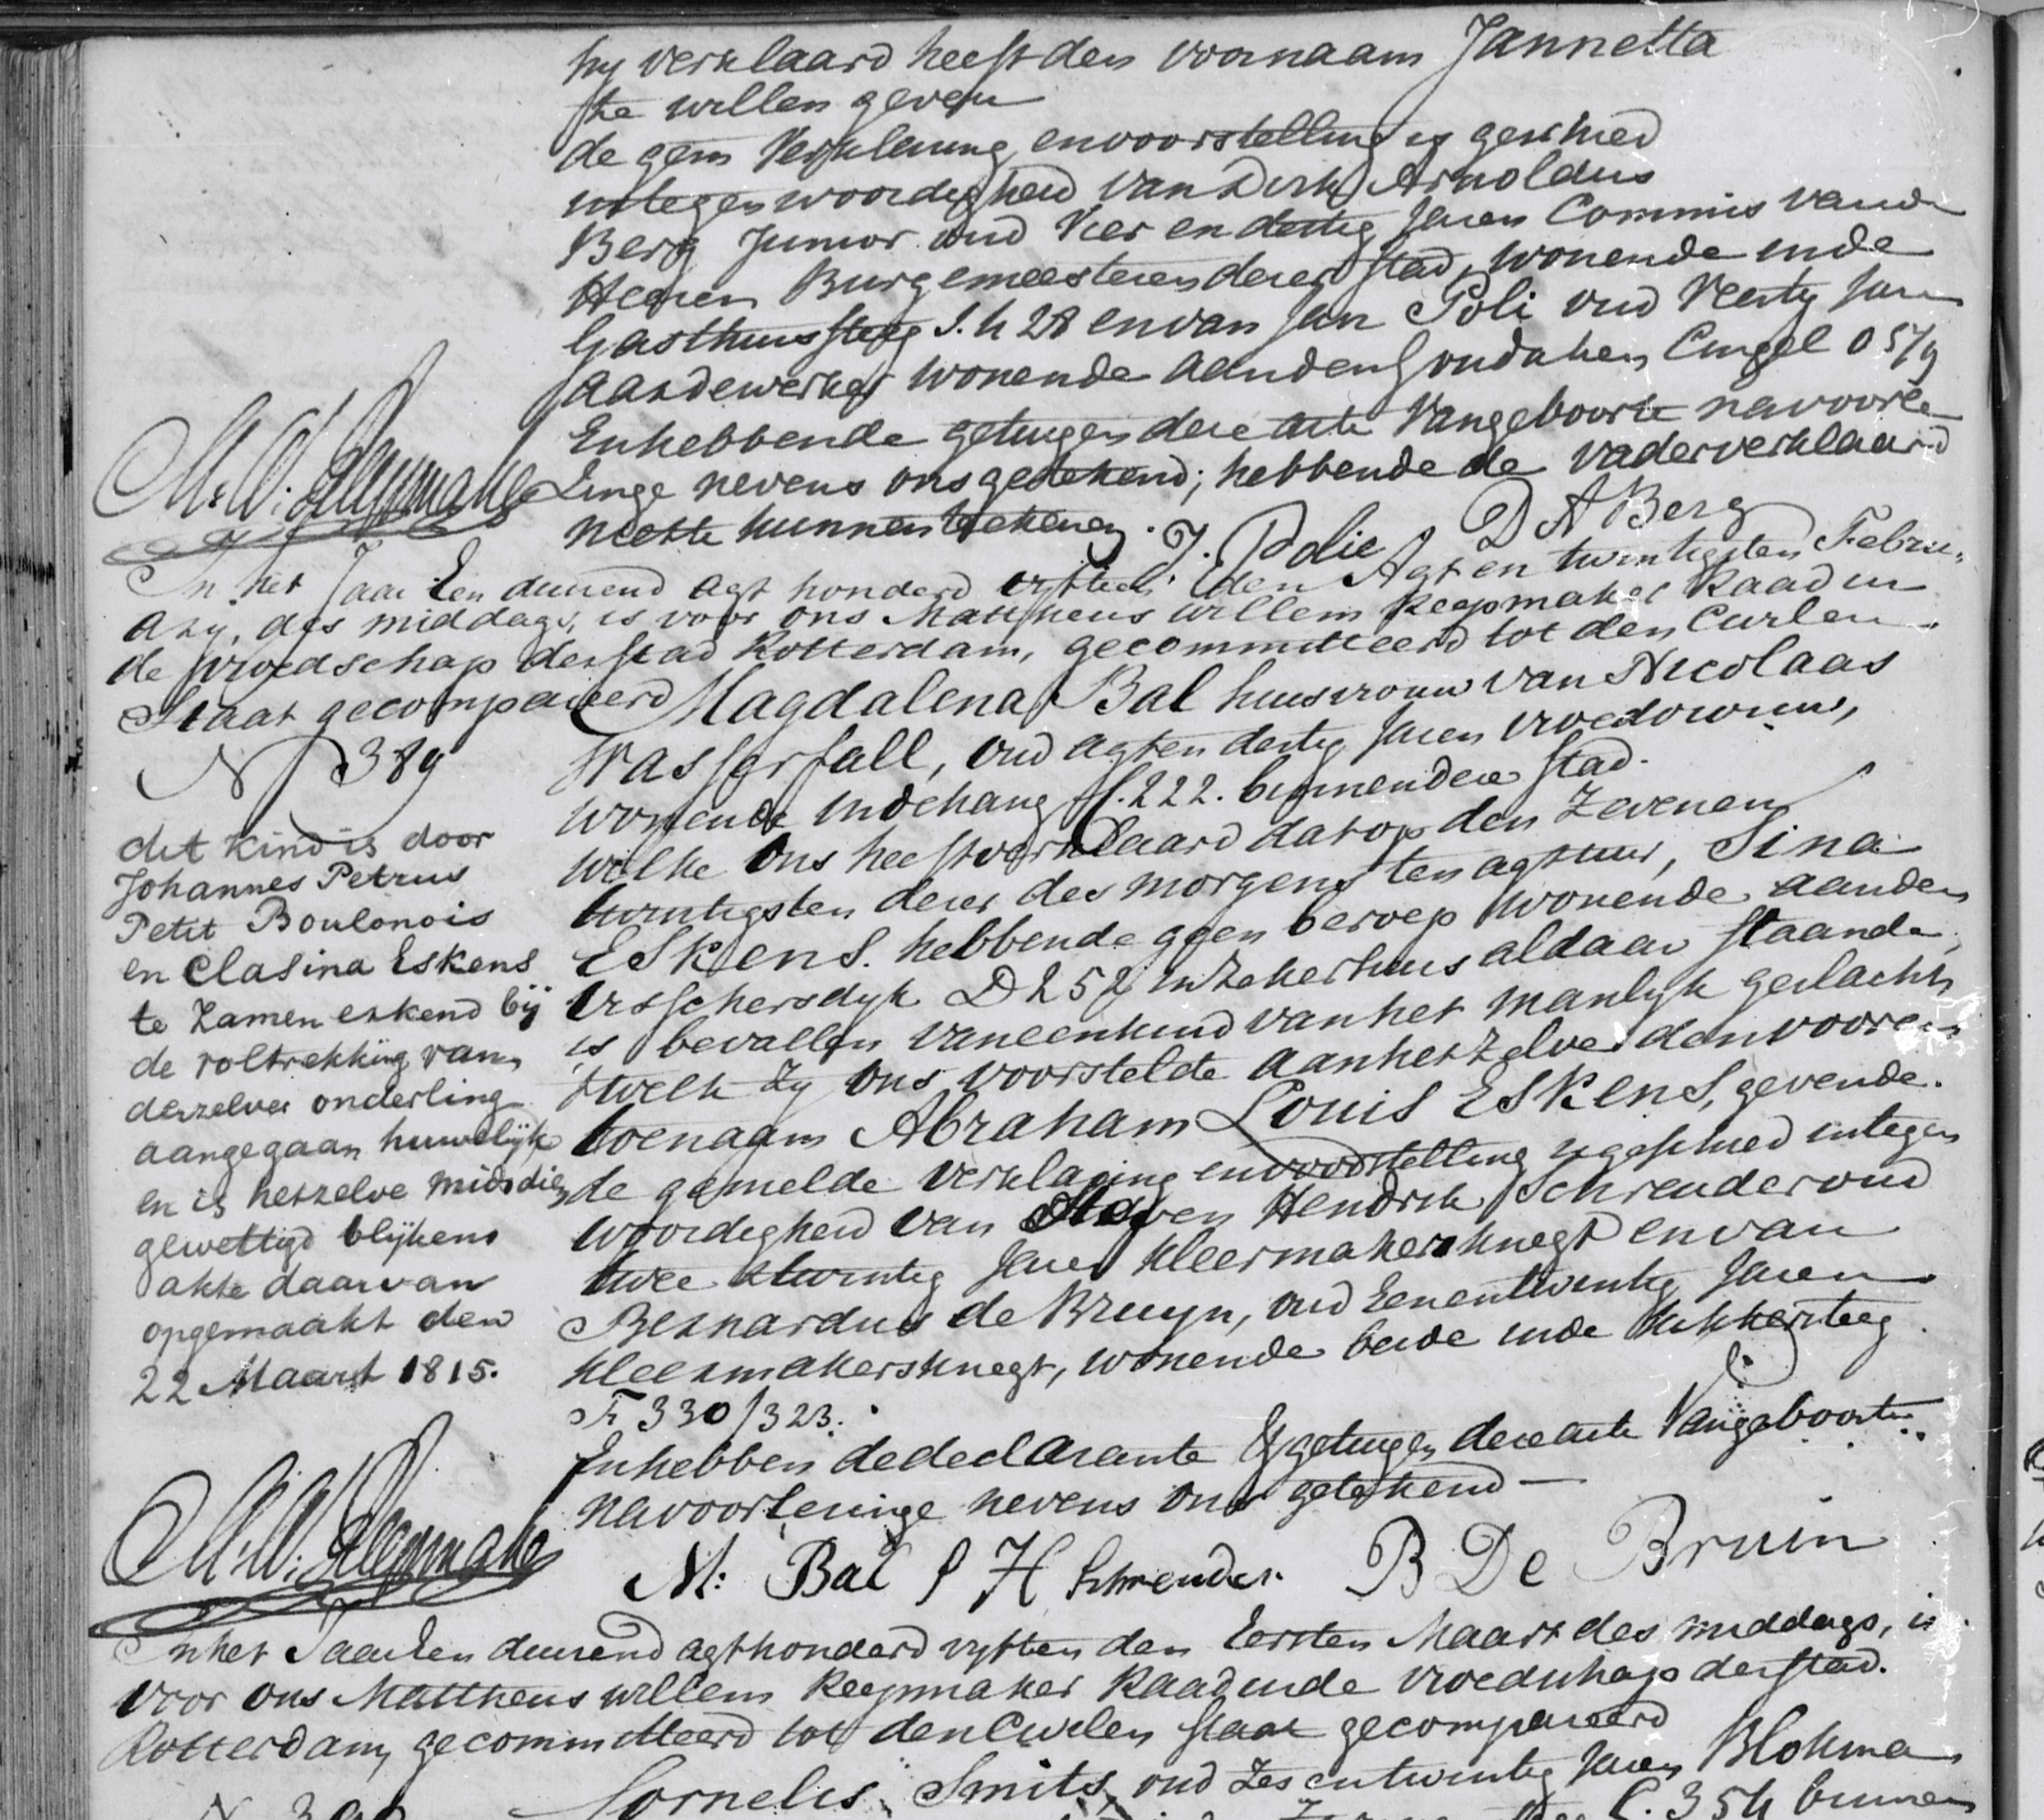 hy verklaard heeft den voornaam Jannetta
te willen geven
de gem Verklaring en voorstelling is geschied
in tegenwoordigheid van Dirk Arnoldus
Berg Junior oud Vier en dertig Jaren Commis van de
Heeren Burgemeesteren dezer stad, wonende in de
Gasthuissteeg I. h 28 en van Jan Poli oud Veertig Jaren
aardewerker wonende aan den Goudschen Cingel O 579
En hebben de getuigen deze acte van geboorte na voorle-
zinge nevens ons getekend; hebbende de vader verklaard
niet te kunnen tekenen. J. Polie D A Berg
M. W. Reepmaker
In het Jaar Een duizend agt honderd vyftien den Agt en twintigsten Febru-
ary, des middags, is voor ons Mattheus Willem Reepmaker Raad in
de vroedschap der stad Rotterdam, gecommitteerd tot den Civilen
Staat gecompareerd Magdalena Bal huisvrouw van Nicolaas
N 389
Wasserfall, oud agt en dertig Jaren vroedvrouw,
wonende in de hang M. 222. binnen deze stad.
welke ons heeft verklaard dat op den Zeven en
twintigsten dezer des morgens ten agt uur, Sina
Eskens. hebbende geen beroep wonende aan den
Visschersdyk D 252 in zeker huis aldaar staande,
is bevallen van een kind van het manlyk geslacht,
't welk zy ons voorstelde aan hetzelve den vooren
toenaam Abraham Louis Eskens, gevende.
de gemelde verklaring en voorstelling is geschied in tegen
woordigheid van Steven Hendrik Schreuder oud
twee & twintig Jaren kleermakersknegt en van
Bernardus de Bruyn, oud Een en twintig Jaren
kleermakersknegt, wonende beide in de bakkersteeg
F 330/323.
En hebben de declarante & getuigen deze acte van geboorte
na voorlezinge nevens ons getekend
dit kind is door
Johannes Petrus
Petit Boulonois
en Clasina Eskens
te zamen erkend bij
de voltrekking van
derzelver onderling
aangegaan huwelijk
en is hetzelve midsdien
gewettigd blijkens
akte daarvan
opgemaakt den
22 Maart 1815.
M. W. Reepmaker
M: Bal S H Schreuder. B De Bruin
In het Jaar Een duizend agt honderd vyftien den Eersten Maart des middags, is
voor ons Mattheus Willem Reepmaker Raad in de vroedschap der stad.
Rotterdam, gecommitteerd tot den Civilen staat gecompareerd
N 390
Cornelis Smits, oud Zes en twintig Jaren Blokmaker
C. 354 binnen